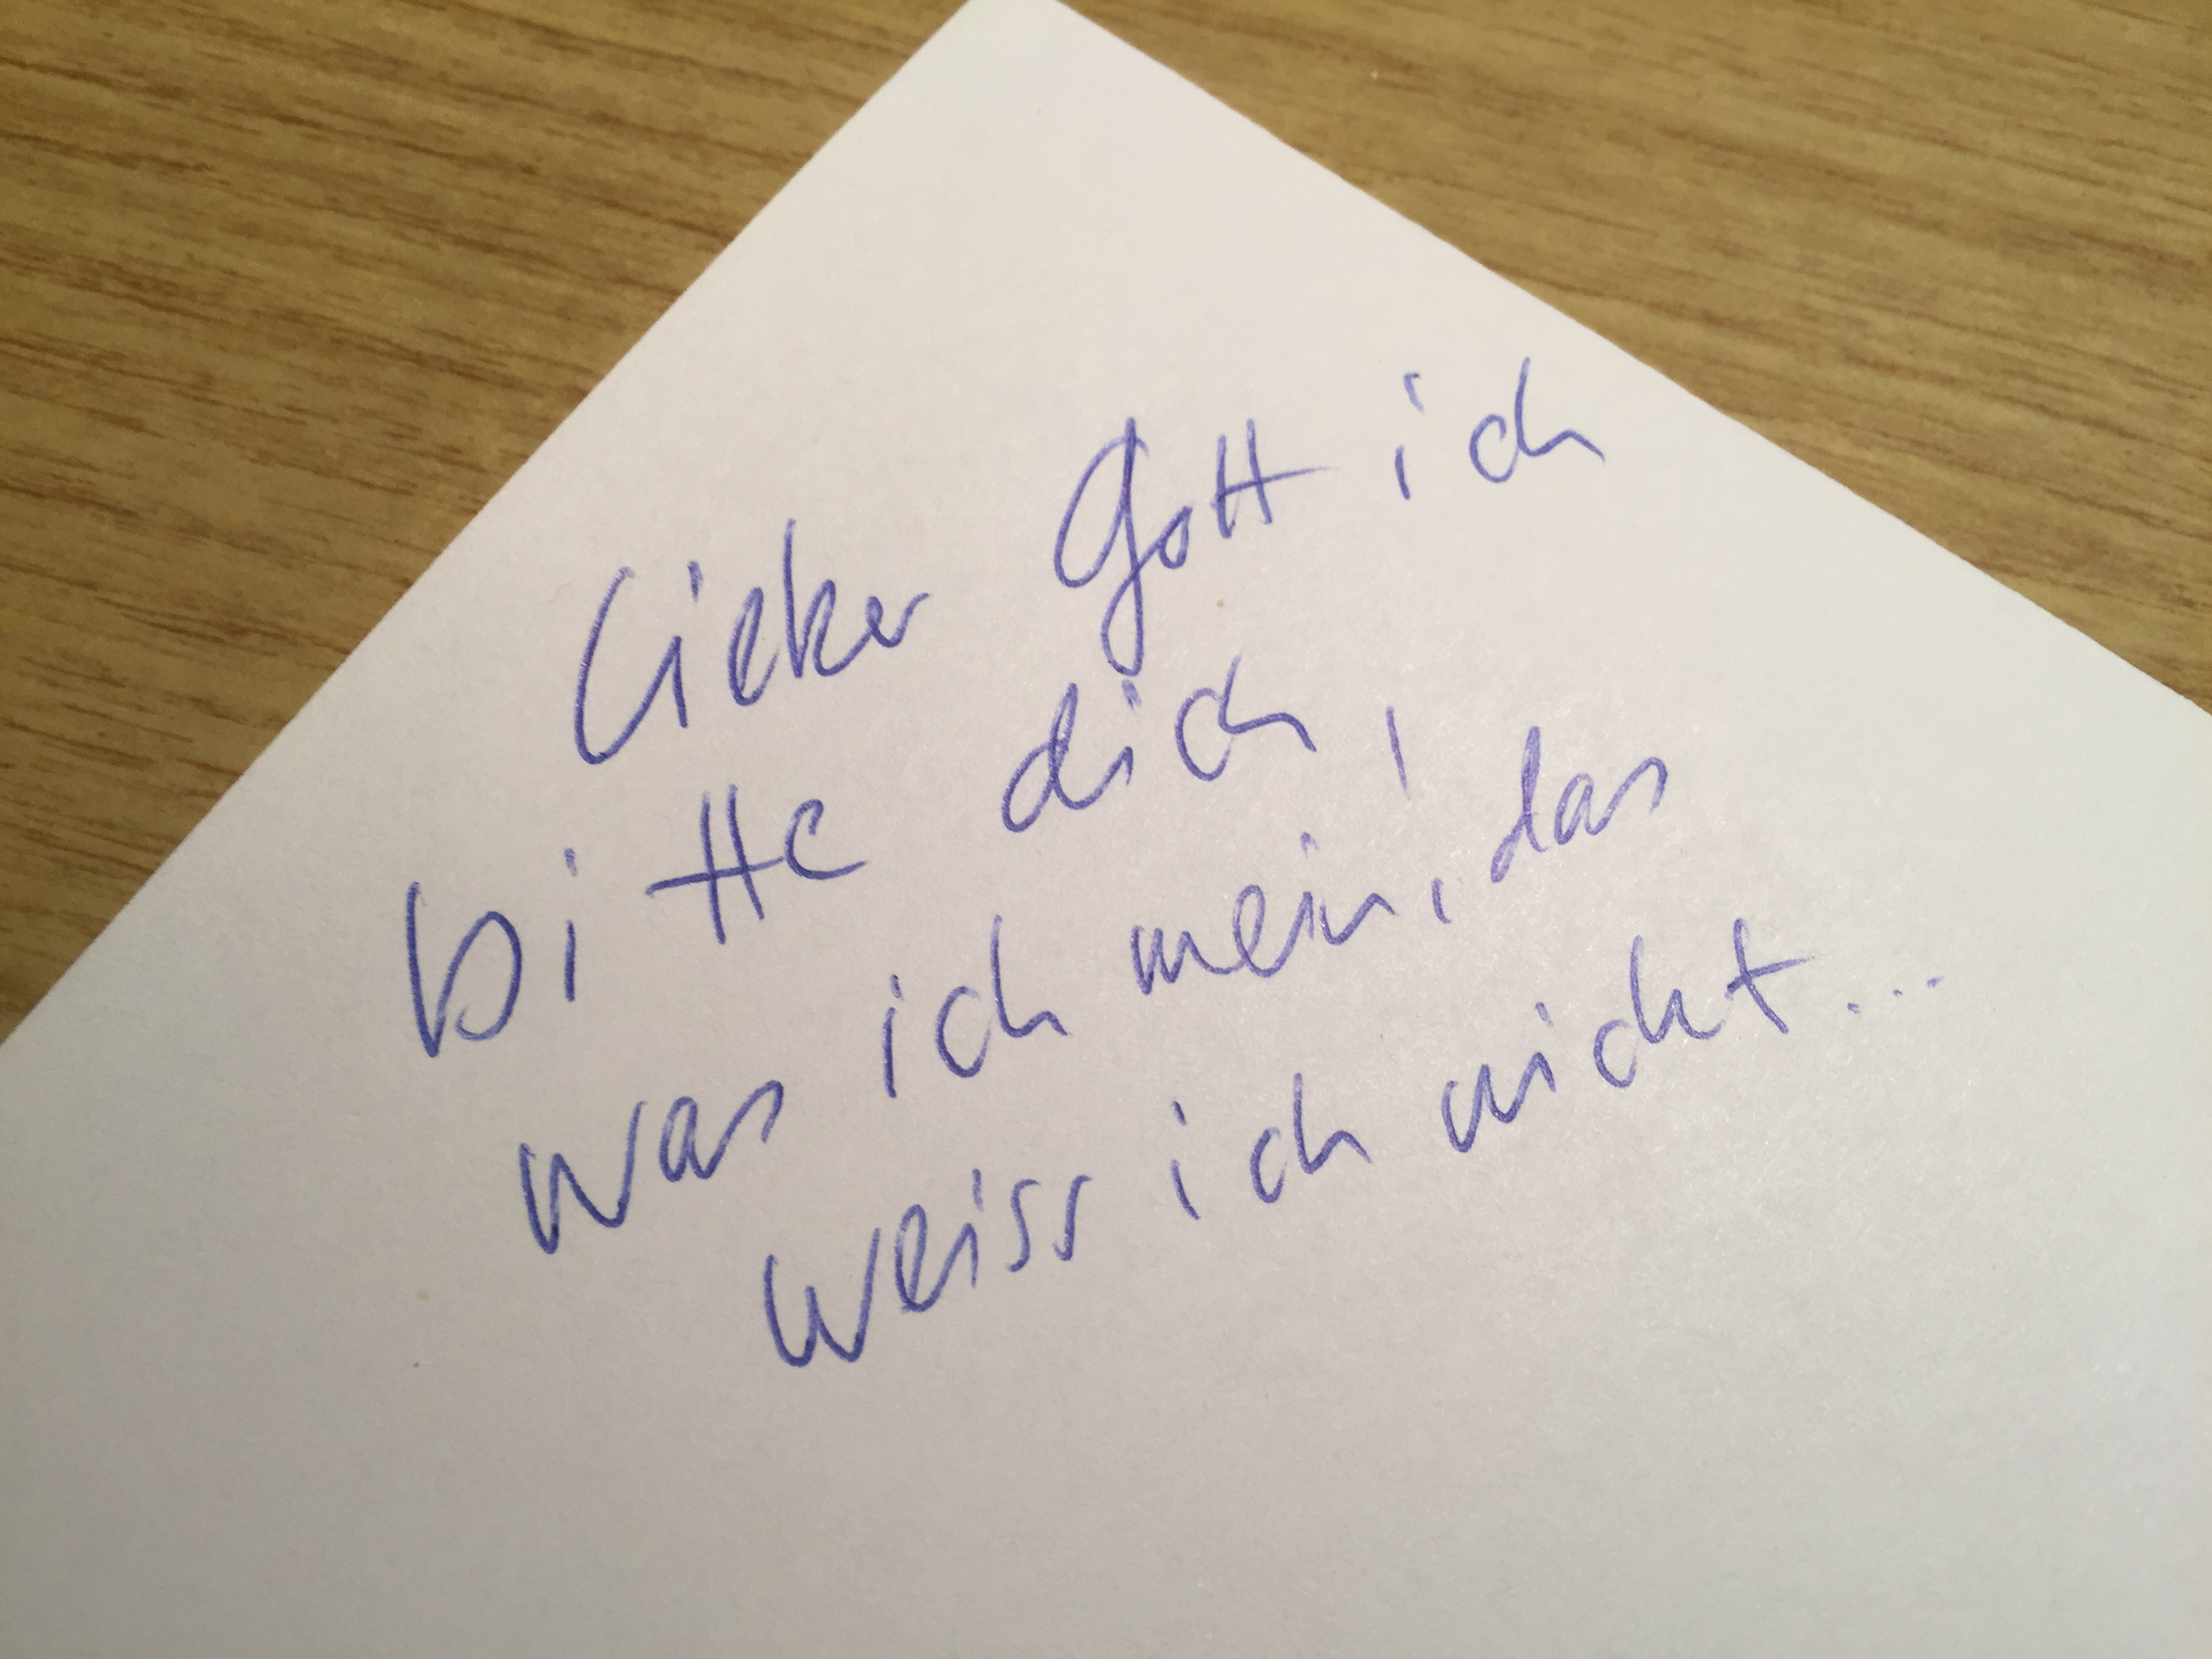 Lieber Gott ich
bitte dich,
was ich mein, das
weiss ich nicht...